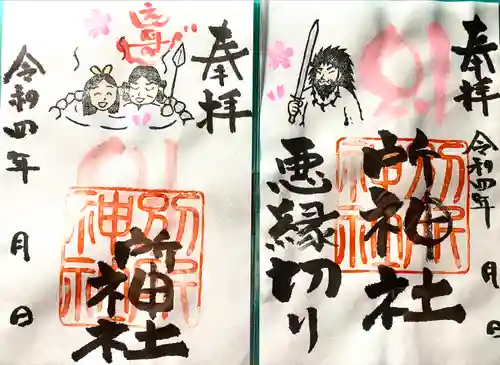 奉拝
別
所神社
別所
神社
令和四年 月 日
奉拝
令和四年 月 日
別
所神社
別所
神社
悪縁切り